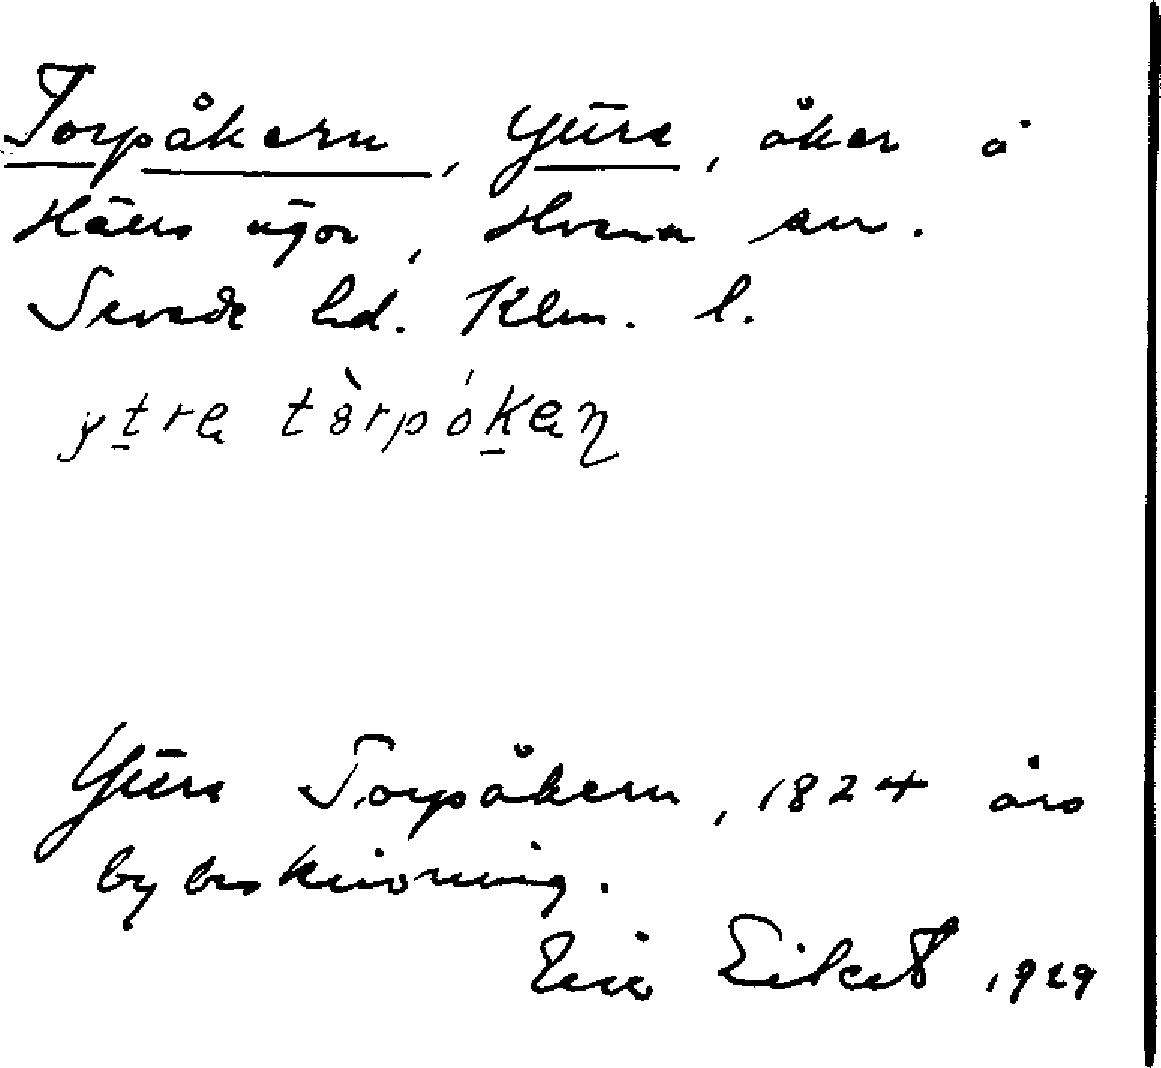 Torpåkern, Yttre, åker å
Hälls ägor, Hvena sn.
Sevede hd. Klm. l.
ytrə tòrpókəɳ
Yttre Torpåkern, 1824 års
bybeskrivning.
Eric Eiket 1929